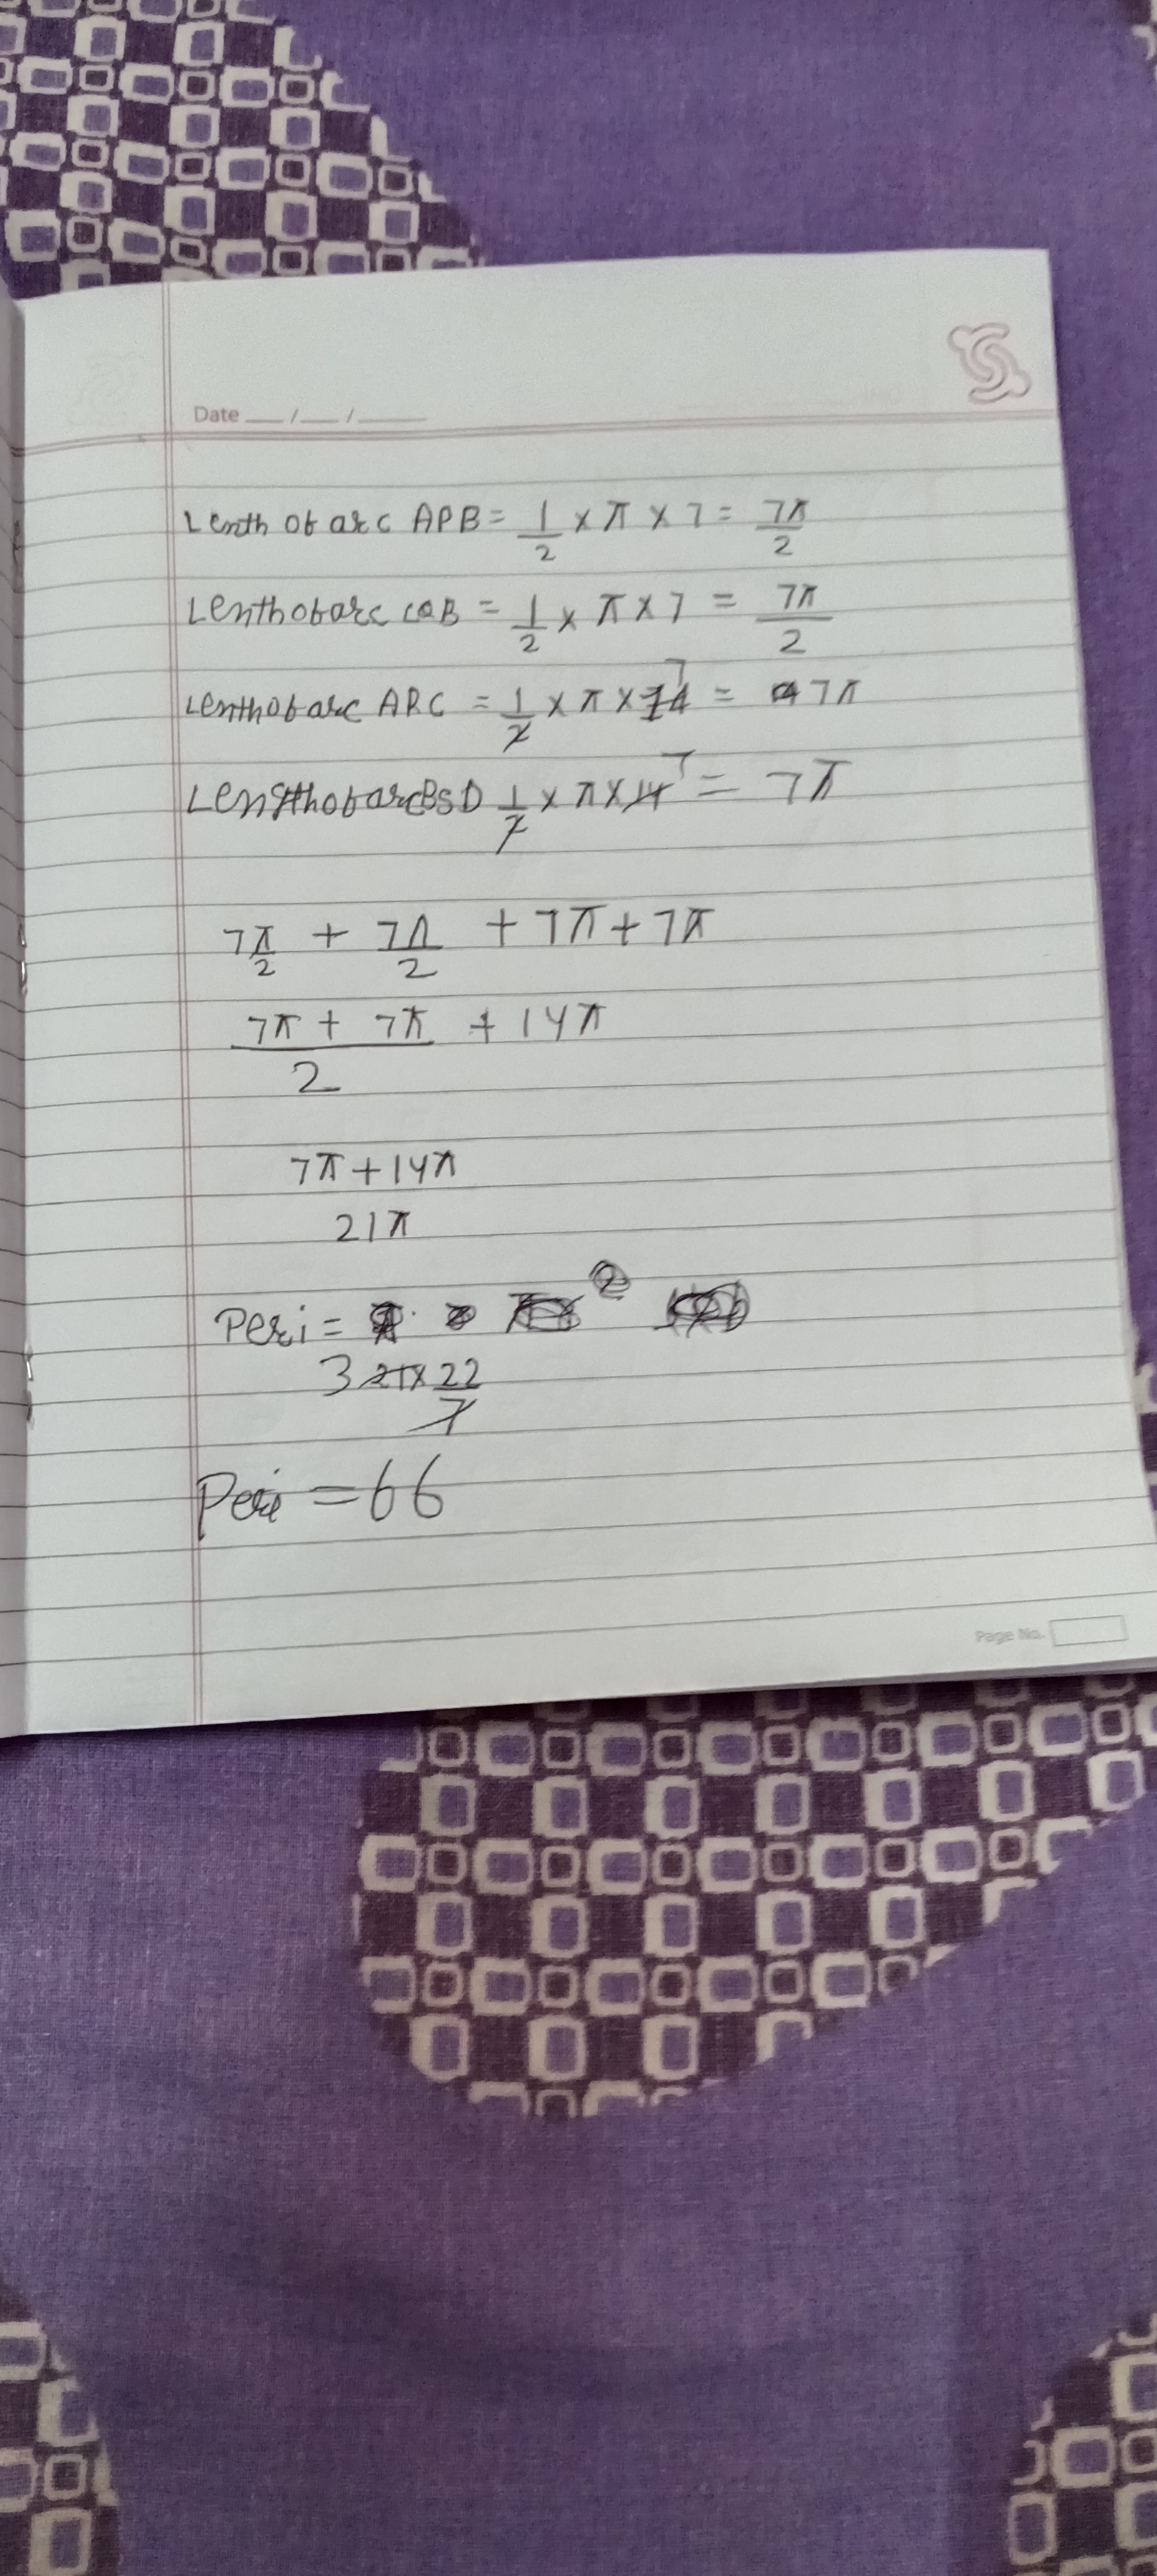 Date __/__/____
Lenth of arc APB = 1/2 × π × 7 = 7π/2
Lenth of arc CQB = 1/2 × π × 7 = 7π/2
Lenth of arc ARC = 1/2 × π × 14 7 = 7π
Length of arc BSD 1/2 × π × 14 7 = 7π
7π/2 + 7π/2 + 7π + 7π
7π + 7π/2 + 14π
7π + 14π
21π
Peri =
3 21 × 22/7
Peri = 66
Page No.